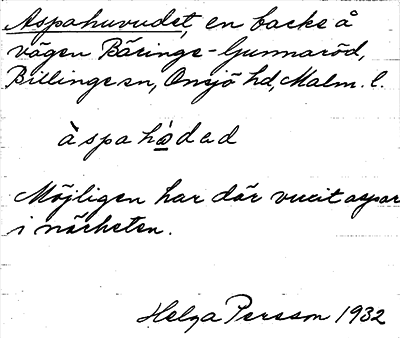 Aspahuvudet, en backe å
vägen Bäringe-Gunnaröd,
Billinge sn, Onsjö hd, Malm. l.
àspahò̲dad
Möjligen har där vuxit aspar
i närheten.
Helga Persson 1932